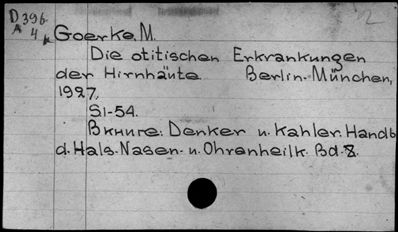 D 396
A 4
Goerke, M.
Die otitischen Erkrankungen
der Hirnhäute Berlin-München,
1927.
SI-54.
Вкниге: Denker u. Kahler. Handb
d. Hals-Nasen- u. Ohrenheilk. Bd. 8.